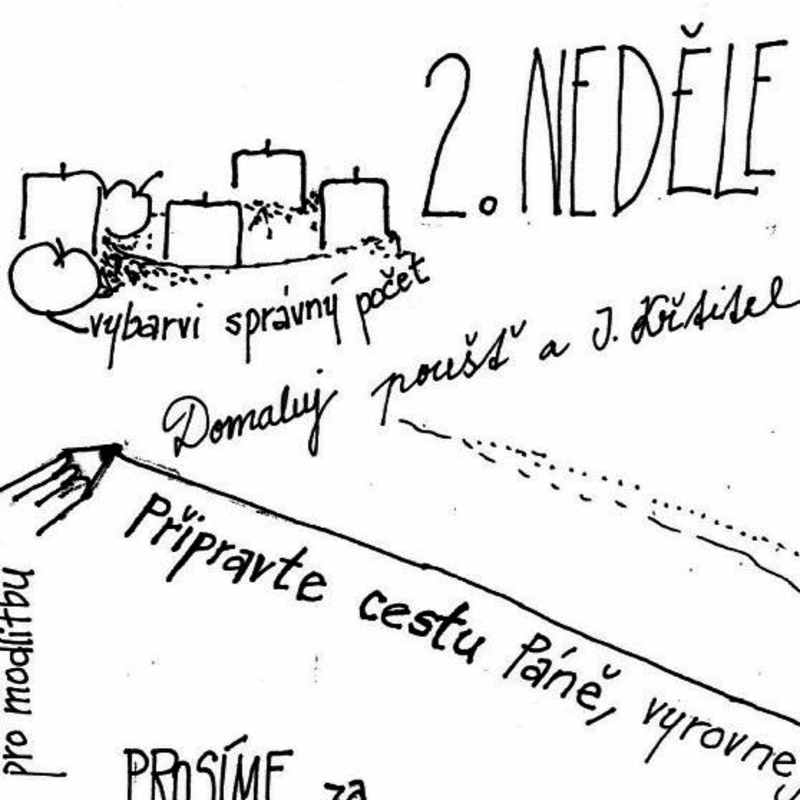 2. NEDĚLE
vybarvi správný počet
Domaluj poušť a J. Křtitel
Připravte cestu Páně, vyrovne
pro modlitbu
PROSÍME za